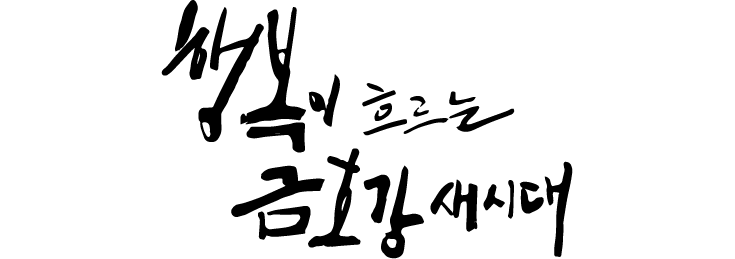 행복이 흐르는
금호강 새시대